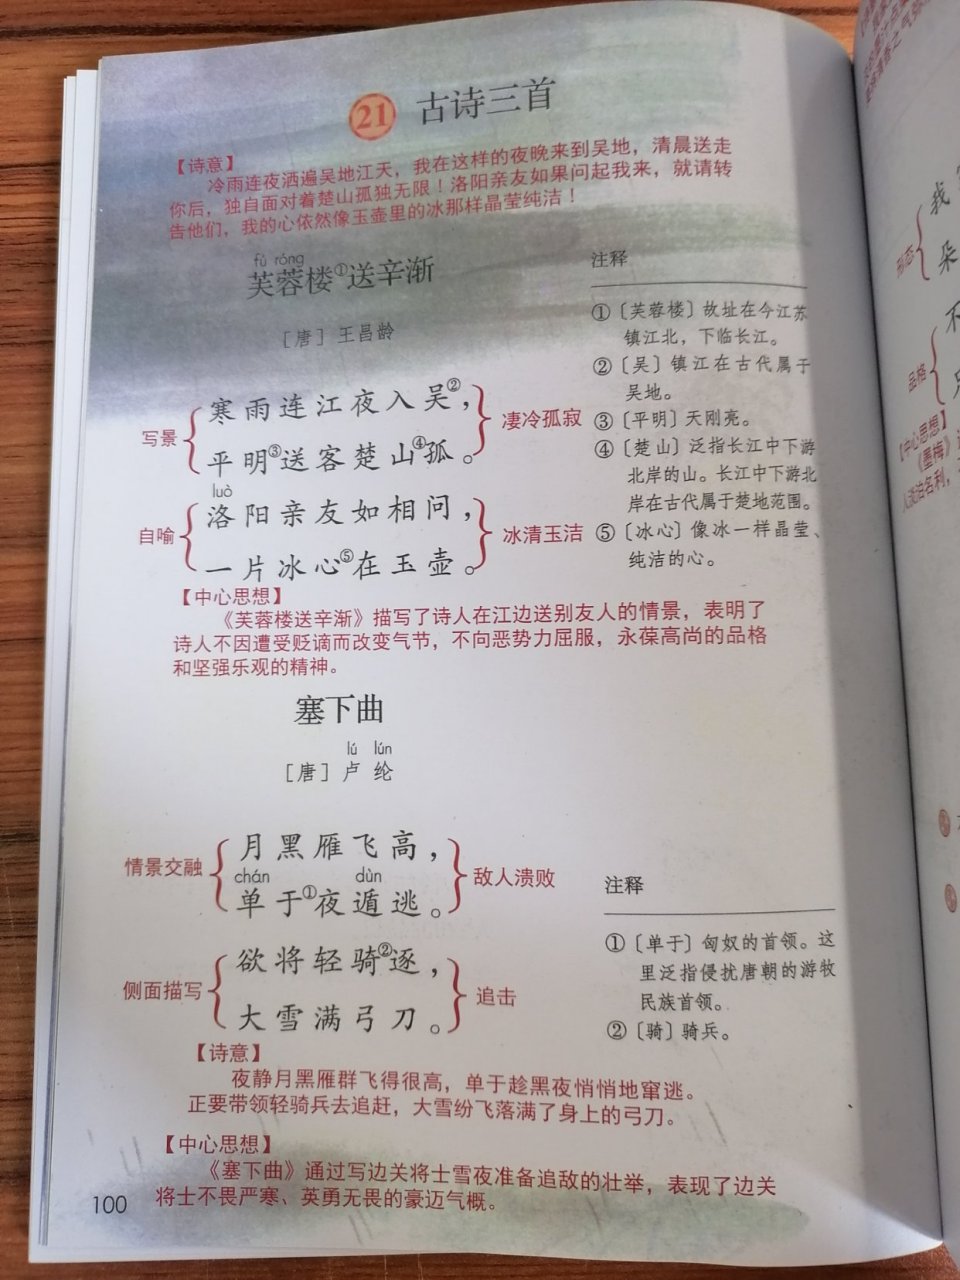 21 古诗三首
【诗意】
冷雨连夜洒遍吴地江天，我在这样的夜晚来到吴地，清晨送走
你后，独自面对着楚山孤独无限！洛阳亲友如果问起我来，就请转
告他们，我的心依然像玉壶里的冰那样晶莹纯洁！
fú róng
芙蓉楼①送辛渐
［唐］王昌龄
写景
寒雨连江夜入吴②，
平明③送客楚山④孤。
凄冷孤寂
luò
自喻
洛阳亲友如相问，
一片冰心⑤在玉壶。
冰清玉洁
注释
①〔芙蓉楼〕故址在今江苏
镇江北，下临长江。
②〔吴〕镇江在古代属于
吴地。
③〔平明〕天刚亮。
④〔楚山〕泛指长江中下游
北岸的山。长江中下游北
岸在古代属于楚地范围。
⑤〔冰心〕像冰一样晶莹、
纯洁的心。
【中心思想】
《芙蓉楼送辛渐》描写了诗人在江边送别友人的情景，表明了
诗人不因遭受贬谪而改变气节，不向恶势力屈服，永葆高尚的品格
和坚强乐观的精神。
塞下曲
lú lún
［唐］卢纶
情景交融
月黑雁飞高，
chán dùn
单于①夜遁逃。
敌人溃败
侧面描写
欲将轻骑②逐，
大雪满弓刀。
追击
注释
①〔单于〕匈奴的首领。这
里泛指侵扰唐朝的游牧
民族首领。
②〔骑〕骑兵。
【诗意】
夜静月黑雁群飞得很高，单于趁黑夜悄悄地窜逃。
正要带领轻骑兵去追赶，大雪纷飞落满了身上的弓刀。
【中心思想】
《塞下曲》通过写边关将士雪夜准备追敌的壮举，表现了边关
将士不畏严寒、英勇无畏的豪迈气概。
100
形态
我
朵
品格
不
【中心思想】
《墨梅》
人淡泊名利，